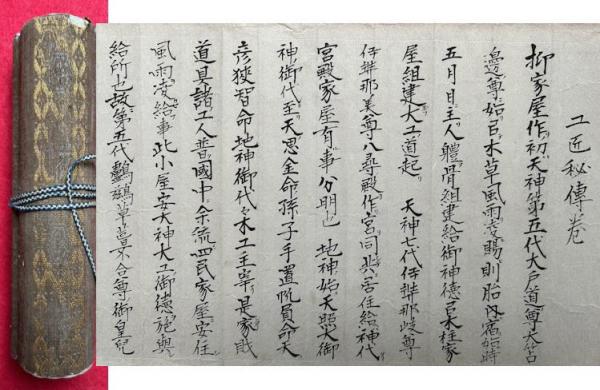 工匠秘傳巻
抑家屋作初天神第五代大戸道尊大苫
邊尊始㠯木草風雨凌賜則胎内宿始時
五月目主人軆骨組建給御神徳㠯木柱家
屋組建大工道起 天神七代伊弉那岐尊
伊弉那美尊八尋殿作宮同住給神代
宮殿家屋有事分明也 地神始天照大御
神御代至天思金命孫子手置帆負命天
彦狹智命地神御代々木工主宰是家財
道具諸工人普國中余流四民家屋安住
風雨凌給事此小屋安大神大工御徳施與
給所也故第五代鸕鷀草葺不合尊御皇兒